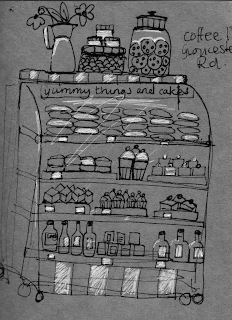 coffee
Gloucester
Rd.
yummy things and cakes